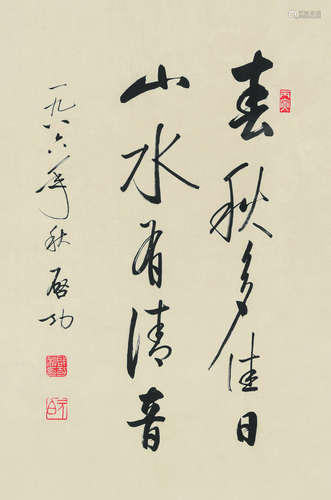 春秋多佳日
山水有清音
一九八六年秋 启功